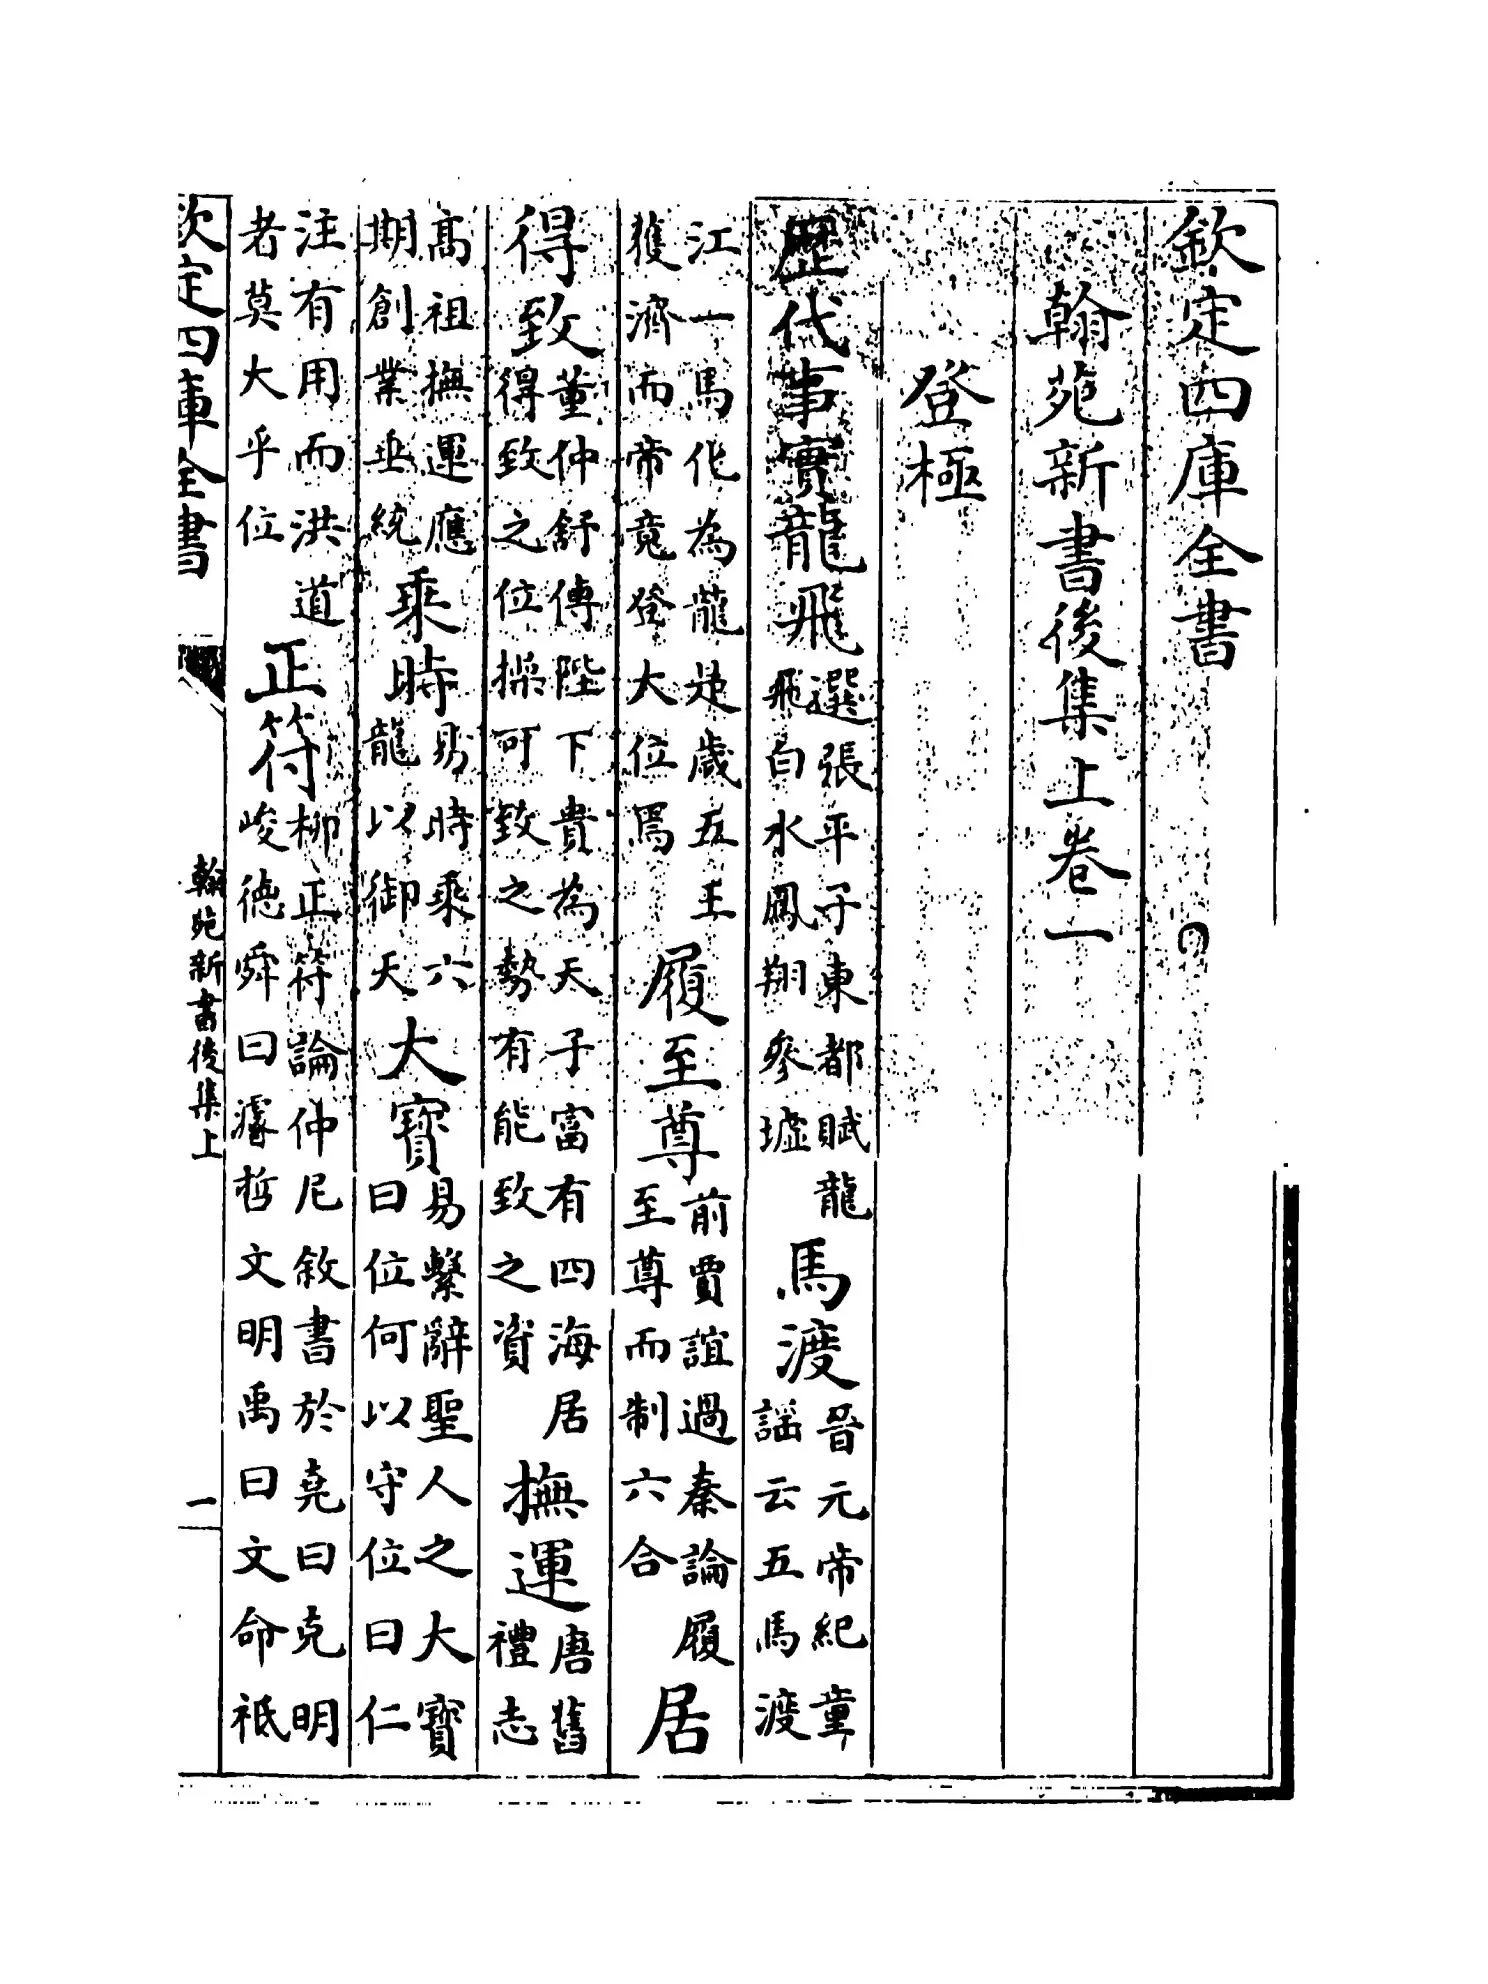 欽定四庫全書
翰苑新書後集上卷一
登極
歷代事實龍飛選張平子東都賦龍飛白水鳳翔參墟馬渡晉元帝紀童謡云五馬渡
江一馬化為龍是歲五王獲濟而帝竟登大位焉履至尊前賈誼過秦論履至尊而制六合居
得致董仲舒傳陛下貴為天子富有四海居得致之位操可致之勢有能致之資撫運唐舊禮志
高祖撫運應期創業垂統乘時易時乘六龍以御天大寳易繫辭聖人之大寳曰位何以守位曰仁
注有用而洪道者莫大乎位正符柳正符論仲尼敘書於堯曰克明峻德舜曰濬哲文明禹曰文命祗
欽定四庫全書
翰苑新書後集上
一